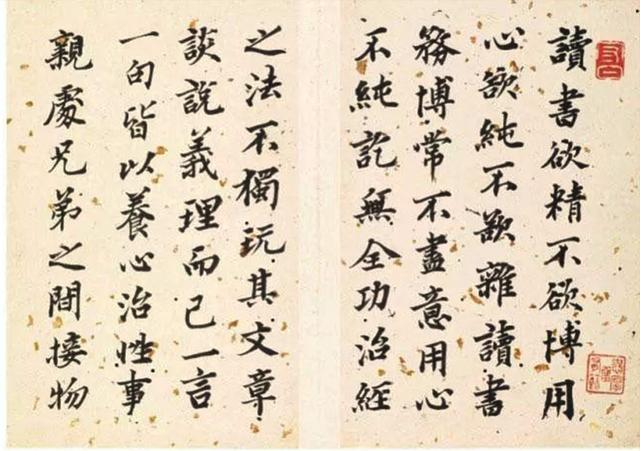 讀書欲精不欲博用
心欲純不欲雜讀書
務博常不盡意用心
不純訖無全功治經
之法不獨玩其文章
談說義理而已一言
一句皆以養心治性事
親處兄弟之間接物